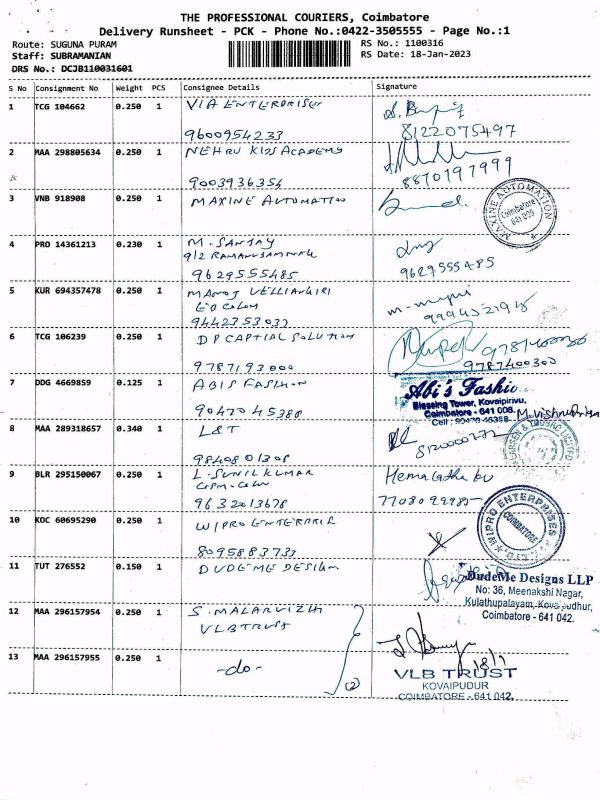 THE PROFESSIONAL COURIERS, Coimbatore
Delivery Runsheet - PCK - Phone No.:0422-3505555 - Page No.:1
Route: SUGUNA PURAM
Staff: SUBRAMANIAN
DRS No.: DCJB110031601
RS No.: 1100316
RS Date: 18-Jan-2023
S No Consignment No Weight PCS Consignee Details Signature
1 TCG 104662 0.250 1 VIA ENTERPRISES
9600954233
8122075497
2 MAA 298805634 0.250 1 NEHRU KIDS ACADEMY
9003936354
8870197999
3 VNB 918908 0.250 1 MAXINE AUTOMATION
MAXINE AUTOMATION
Coimbatore
641 009
4 PRO 14361213 0.230 1 M. SANJAY
9/2
9629555485
9629555485
5 KUR 694357478 0.250 1 MANOJ VELLIANGIRI
9442353037
6 TCG 106239 0.250 1 DP CAPTIAL SOLUTION
9787193000
9787400300
7 DDG 4669859 0.125 1 ABIS FASHION
9047045388
Abi's Fashion
Blessing Tower, Kovaipirivu,
Coimbatore - 641 008.
Cell : 90470 45388
8 MAA 289318657 0.340 1 L&T
9840801308
LARSEN & TOUBRO LIMITED
9 BLR 295150067 0.250 1 L. SUNIL KUMAR
9632013678
Hemalatha
10 KOC 60695290 0.250 1 WIPRO ENTERPRIS
8095883733
WIPRO ENTERPRISES
COIMBATORE
11 TUT 276552 0.150 1 DUDEME DESIGN
DudeMe Designs LLP
No: 36, Meenakshi Nagar,
Kulathupalayam, Kovaipudhur,
Coimbatore - 641 042.
12 MAA 296157954 0.250 1 S. MALARVIZLI
VLB TRUST
13 MAA 296157955 0.250 1 -do-
(2)
VLB TRUST
KOVAIPUDUR
COIMBATORE - 641 042.